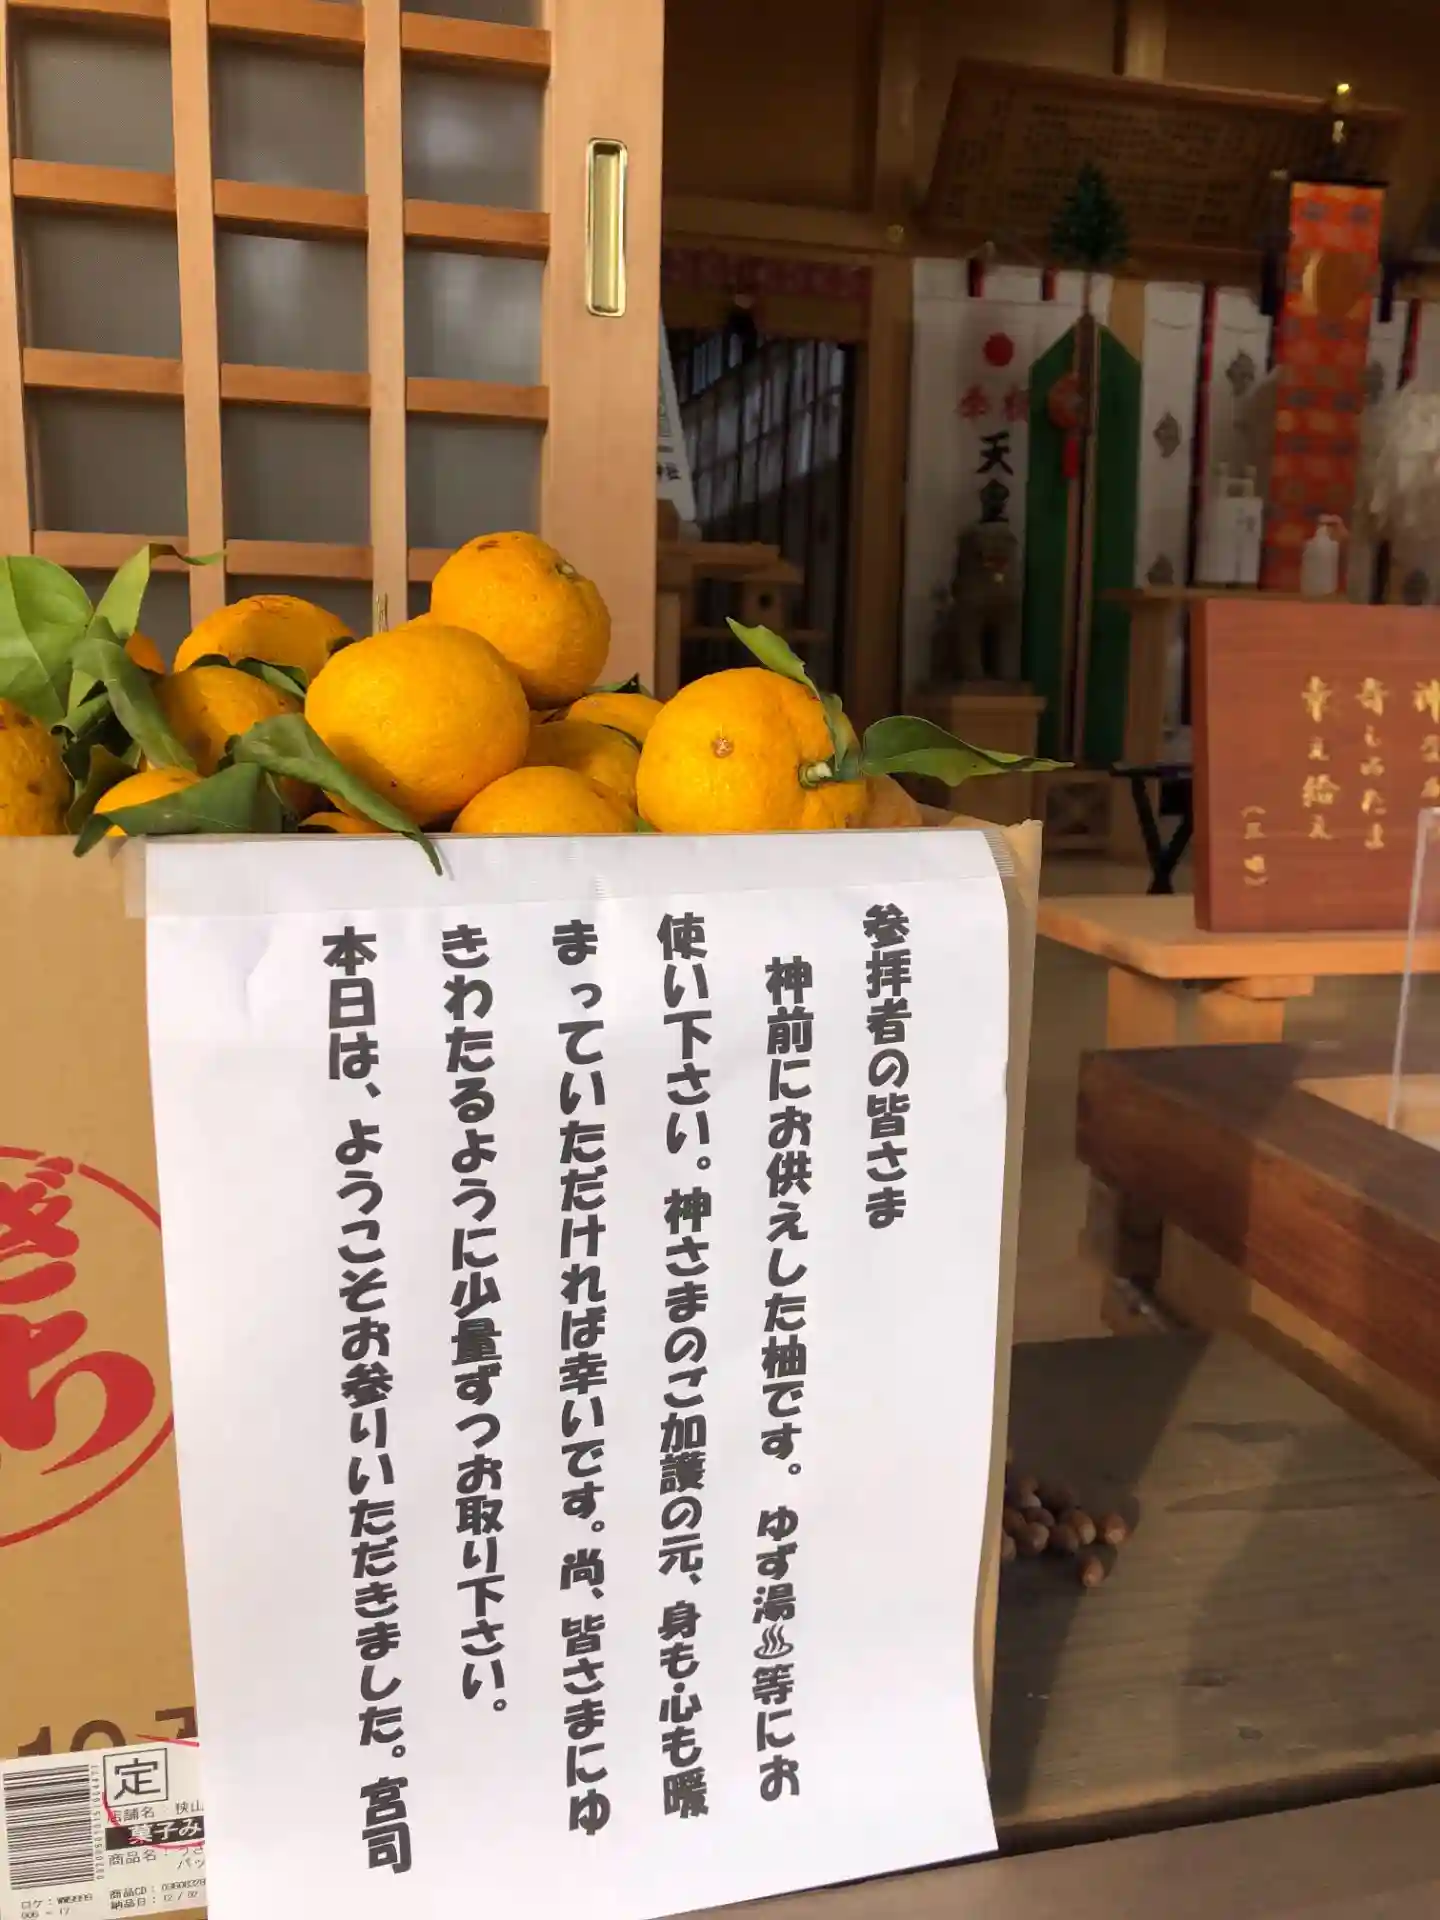 参拝者の皆さま
神前にお供えした柚です。ゆず湯♨等にお
使い下さい。神さまのご加護の元、身も心も暖
まっていただければ幸いです。尚、皆さまにゆ
きわたるように少量ずつお取り下さい。
本日は、ようこそお参りいただきました。宮司
天皇
幸え給え
(三唱)
定
店舗名: 狭山
菓子み
商品名:うさ
パッ
商品CD:
納品日:12/02